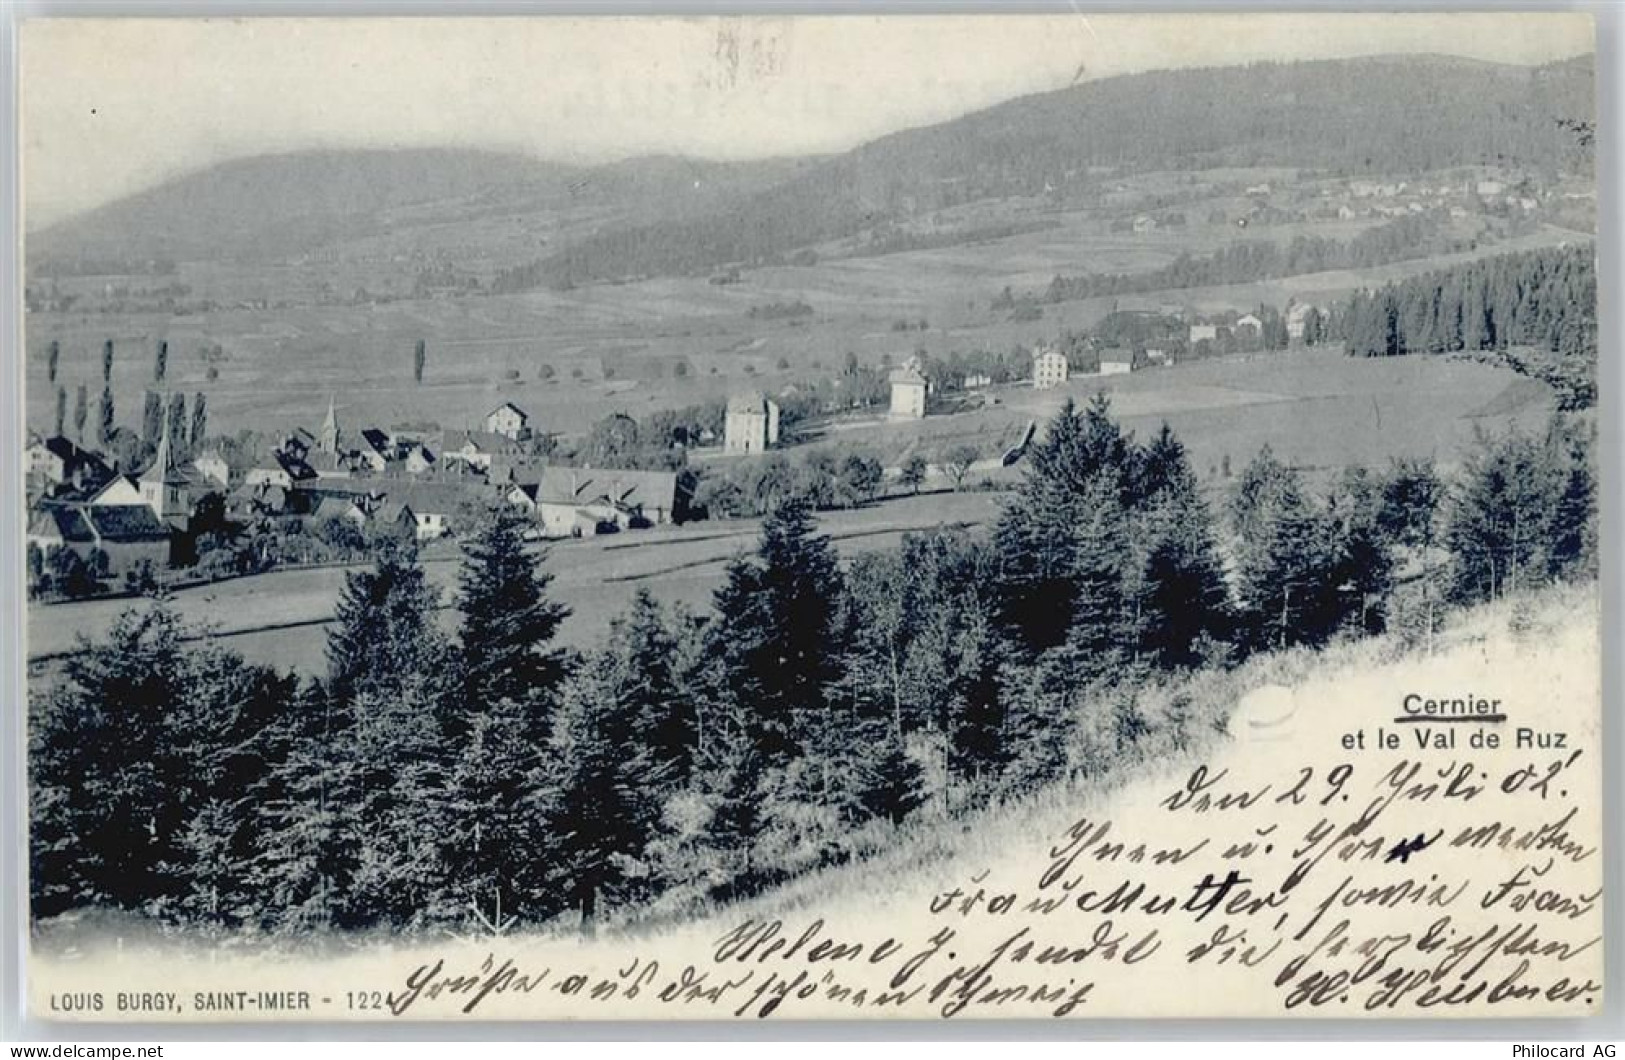 Cernier
et le Val de Ruz
den 29. Juli 02.
Ihnen u. Ihrer werten
Frau Mutter, sowie Frau
Helene J. sendet die herzlichsten
Grüße aus der schönen Schweiz
LOUIS BURGY, SAINT-IMIER - 1224
delcampe.net
Philocard AG